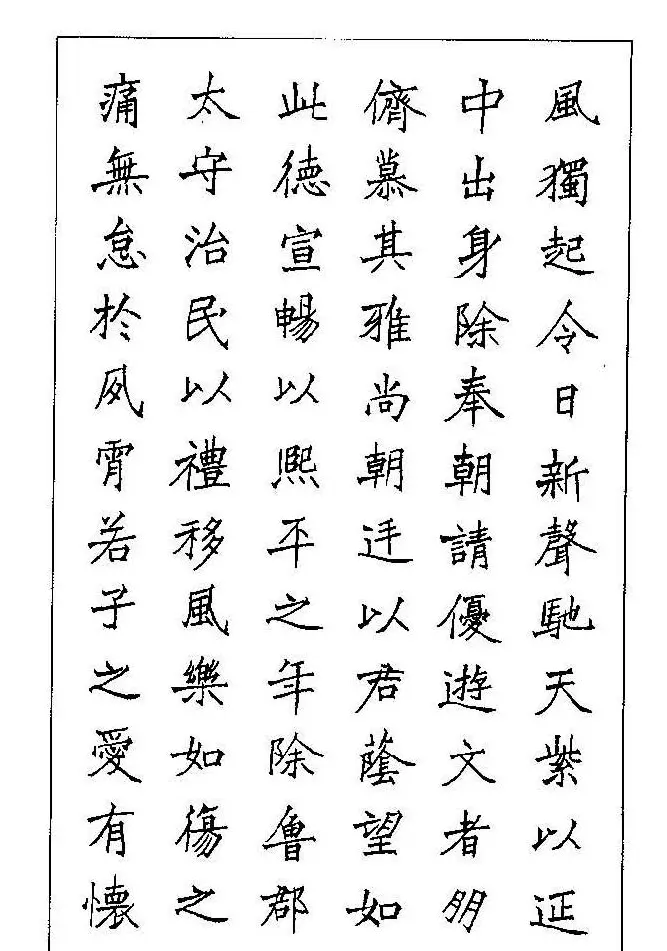 風獨起令日新聲馳天紫以延
中出身除奉朝請優遊文者朋
儕慕其雅尚朝廷以君蔭望如
此德宣暢以熙平之年除魯郡
太守治民以禮移風樂如傷之
痛無怠於夙霄若子之愛有懷